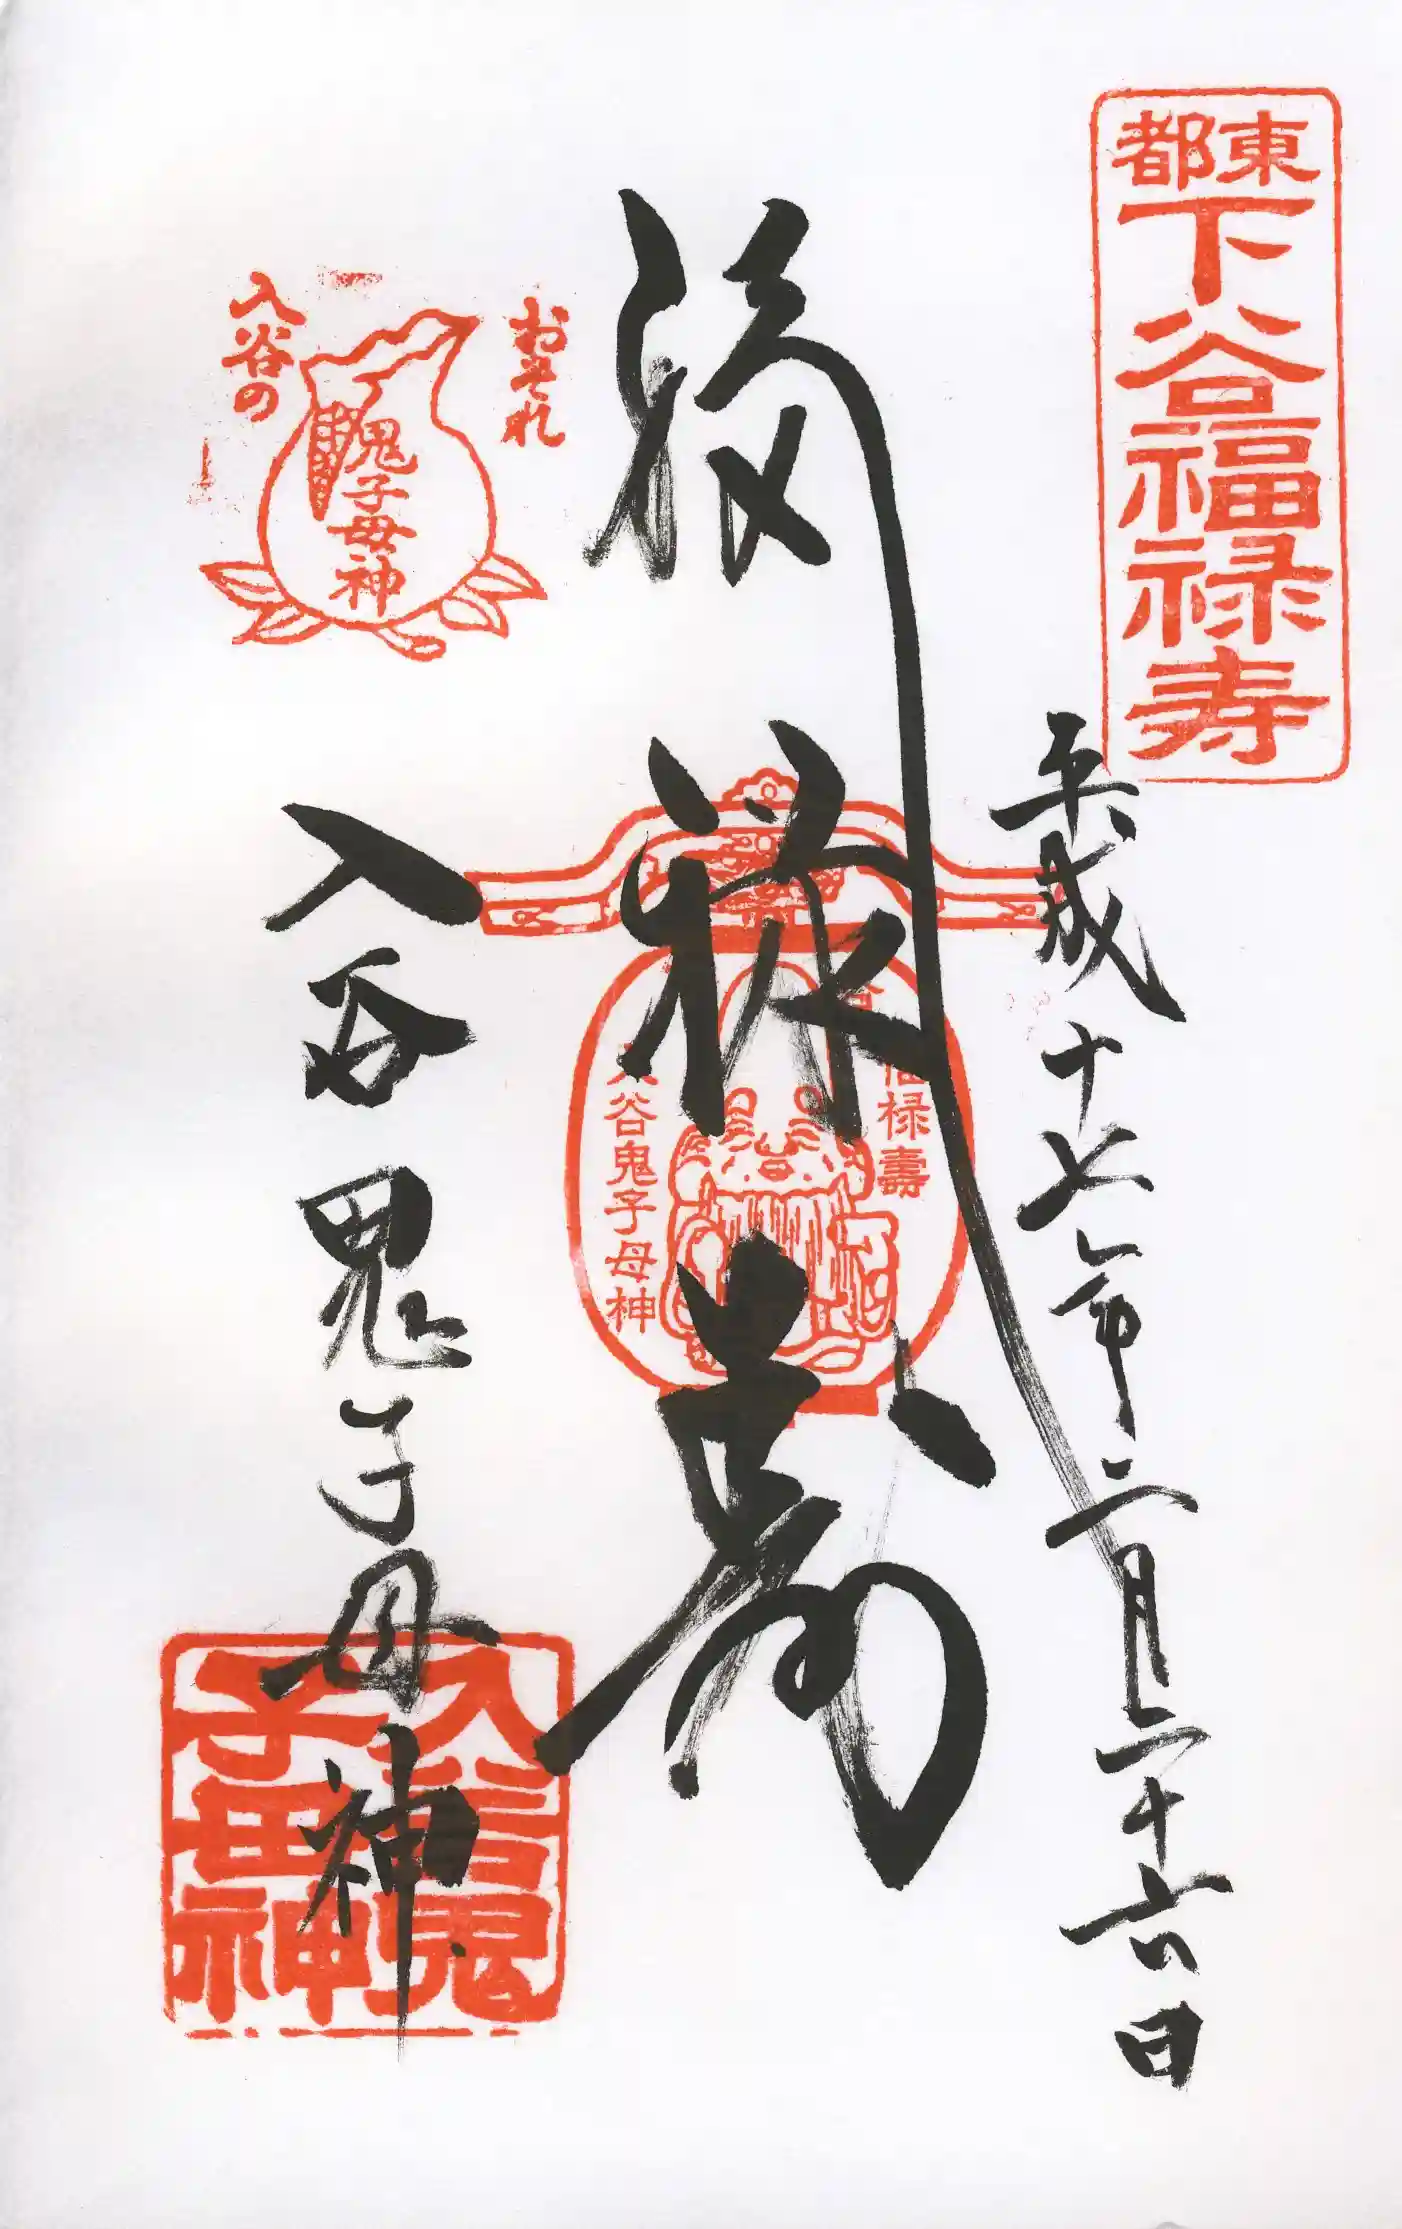 東都
下谷福禄寿
平成十七年二月二十六日
福禄寿
福禄壽
入谷鬼子母神
おそれ
入谷の
鬼子母神
入谷鬼子母神
入谷鬼
子母神